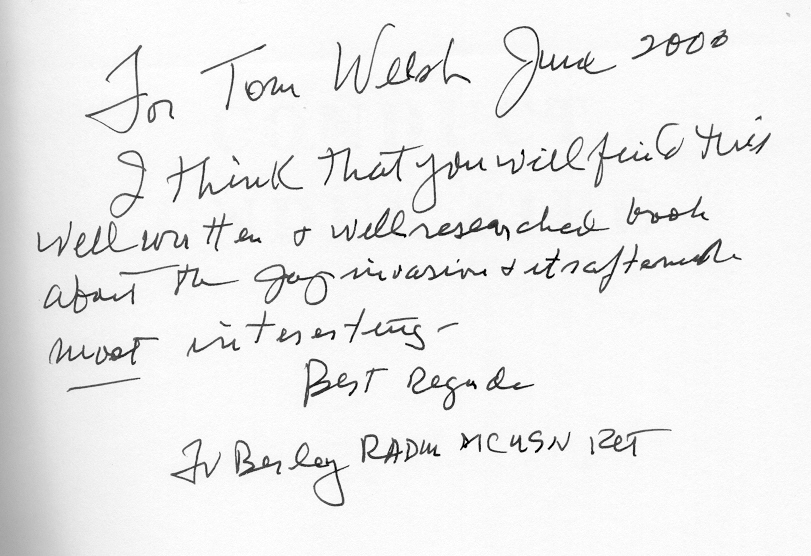 For Tom Welsh June 2000
I think that you will find this
well written & well researched book
about the Jap invasion & its aftermath
most interesting -
Best Regards
FV Berley RADM MC USN RET